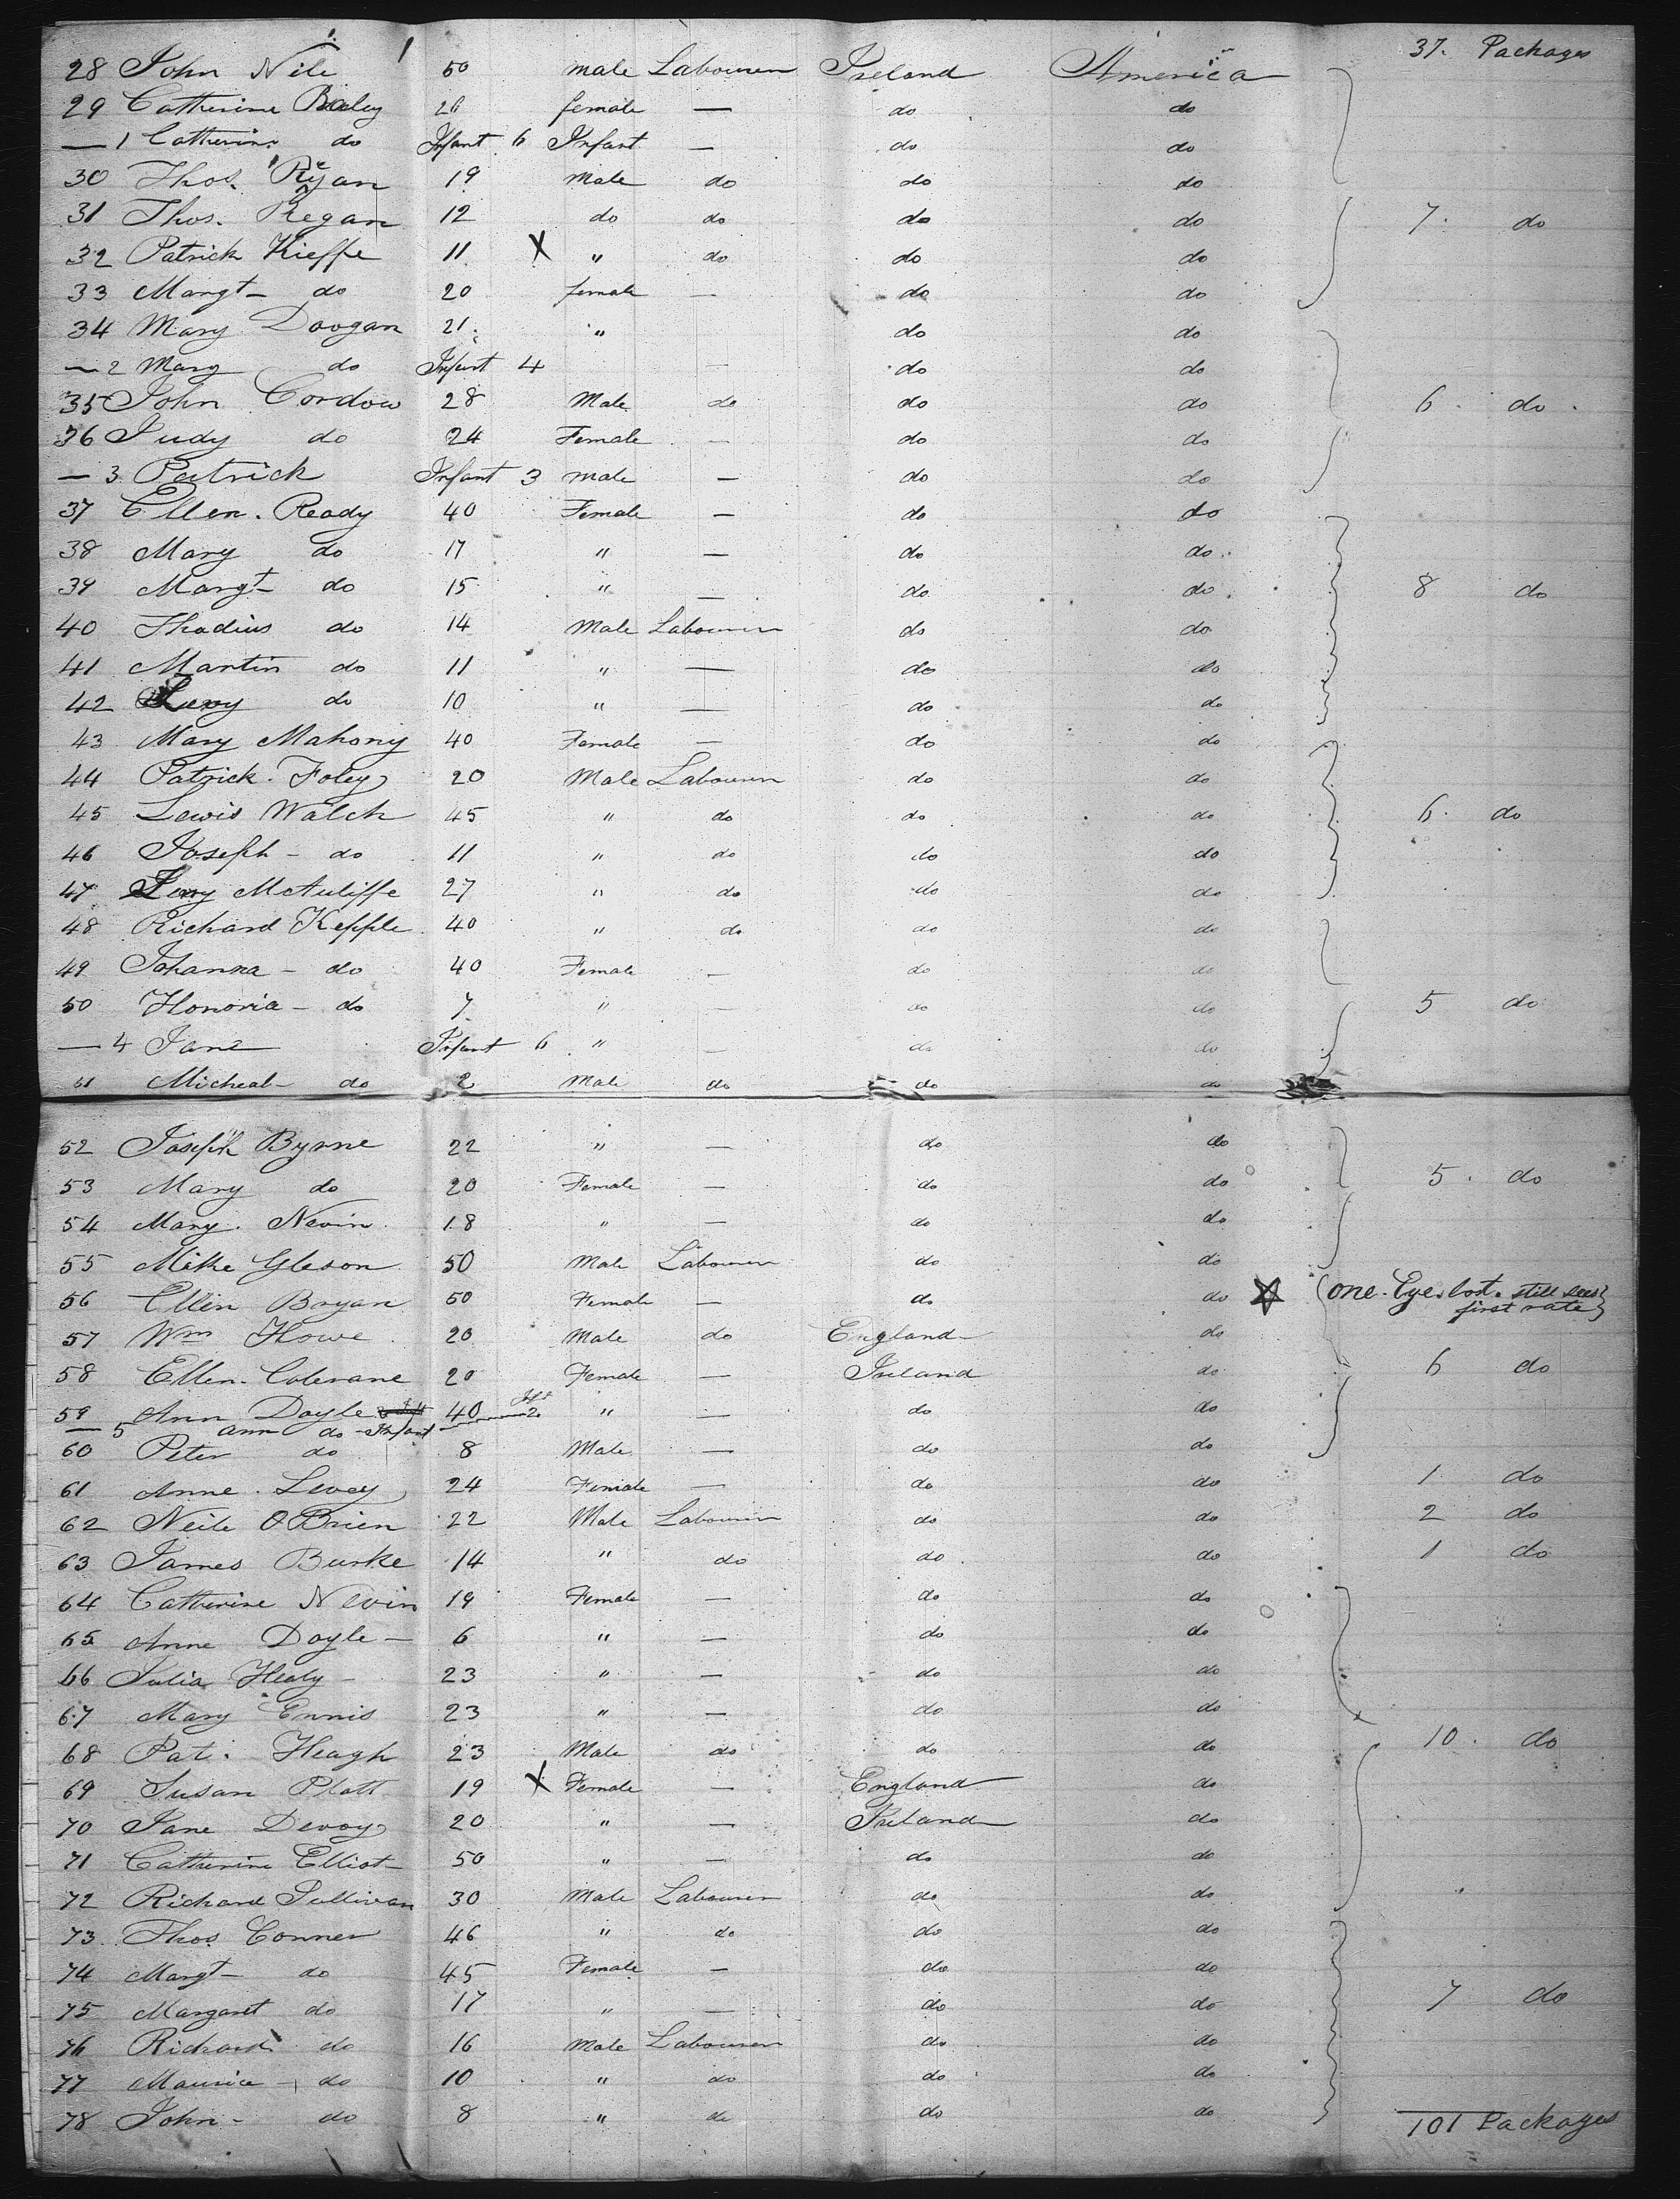 37. Packages
28 John Nile 50 male Labourer Ireland America
29 Catherine Baley 26 female — do do
— 1 Catherine do Infant 6 Infant — do do
30 Thos. Ryan 19 Male do do do
31 Thos. Regan 12 do do do do 7. do
32 Patrick Kieffe 11 X " do do do
33 Margt — do 20 female — do do
34 Mary Doogan 21. " do do
— 2 Mary do Infant 4 — do do
35 John Cordow 28 Male do do do 6. do.
36 Judy do 24 Female — do do
— 3 Patrick Infant 3 male — do do
37 Ellen. Ready 40 Female — do do
38 Mary do 17 " — do do.
39 Margt do 15 " — do do 8 do
40 Thadius do 14 Male Labourer do do
41 Martin do 11 " — do do
42 do 10 " — do do
43 Mary Mahony 40 Female — do do
44 Patrick. Foley 20 Male Labourer do do
45 Lewis Walch 45 " do do do 6. do
46 Joseph — do 11 " do do do
47 McAuliffe 27 " do do do
48 Richard Kepple 40 " do do do
49 Johanna — do 40 Female — do do
50 Honoria — do 7 " — do do 5 do
— 4 Jane Infant 6 " — do do
51 Micheal — do 2 Male do do do
52 Joseph Byrne 22 " — do do
53 Mary do 20 Female — do do 5. do
54 Mary. Nevin 18 " — do do
55 Mike Gleson 50 Male Labourer do do
56 Ellen Bryan 50 Female — do do (one. Eye. lost. still sees
first rate)
57 Wm Howe 20 Male do England do
58 Ellen. Colerane 20 Female — Ireland do 6 do
59 Ann Doyle 40 Inft 2 " — do do
— 5 ann do Infant
60 Peter do 8 Male — do do
61 Anne. Levey 24 Female — do do 1 do
62 Neile OBrien 22 Male Labourer do do 2 do
63 James Burke 14 " do do do 1 do
64 Catherine Nevin 19 Female — do do
65 Anne Doyle — 6 " — do do
66 Julia Healy — 23 " — do do
67 Mary Ennis 23 " — do do
68 Pat. Heagh 23 Male do do do 10. do
69 Susan Platt 19 X Female — England do
70 Jane Devoy 20 " — Ireland do
71 Catherine Elliot — 50 " — do do
72 Richard Sullivan 30 Male Labourer do do
73 Thos Conner 46 " do do do
74 Margt — do 45 Female — do do
75 Margaret do 17 " — do do 7 do
76 Richard do 16 Male Labourer do do
77 Maurice — do 10 " do do do
78 John — do 8 " do do do
101 Packages